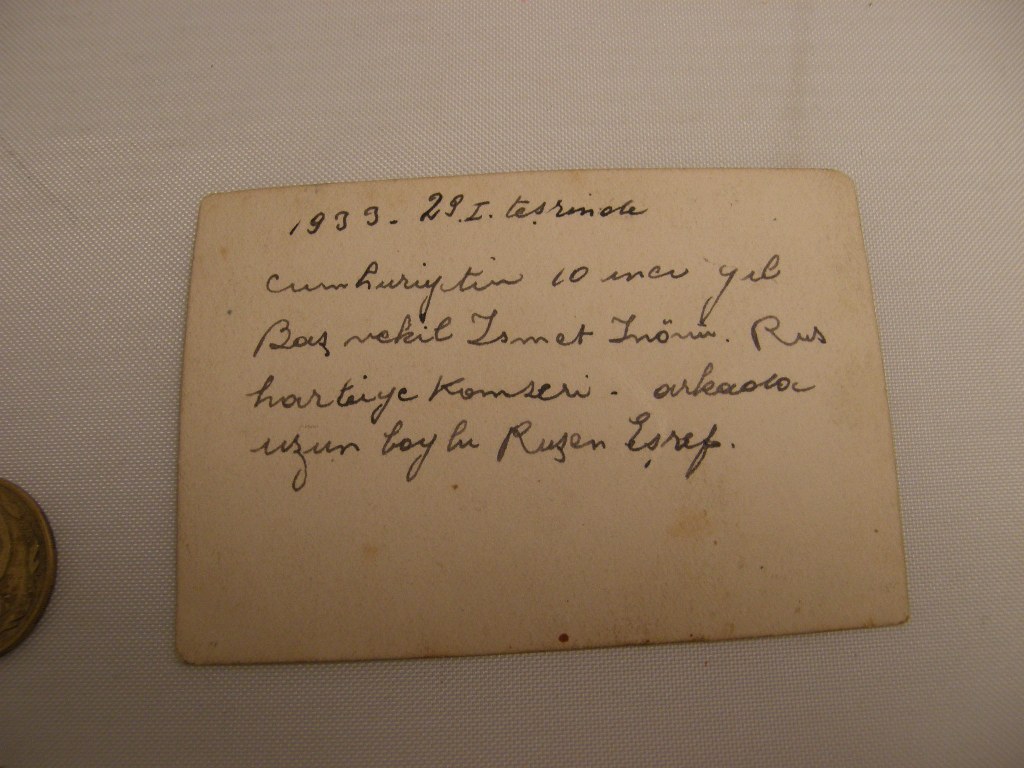 1933- 29.I. teşrinde
Cumhuriytin 10 incı yıl
Baş vekil Ismet Inönü. Rus
hariciye Komseri - arkada
uzun boylu Ruşen Eşref.